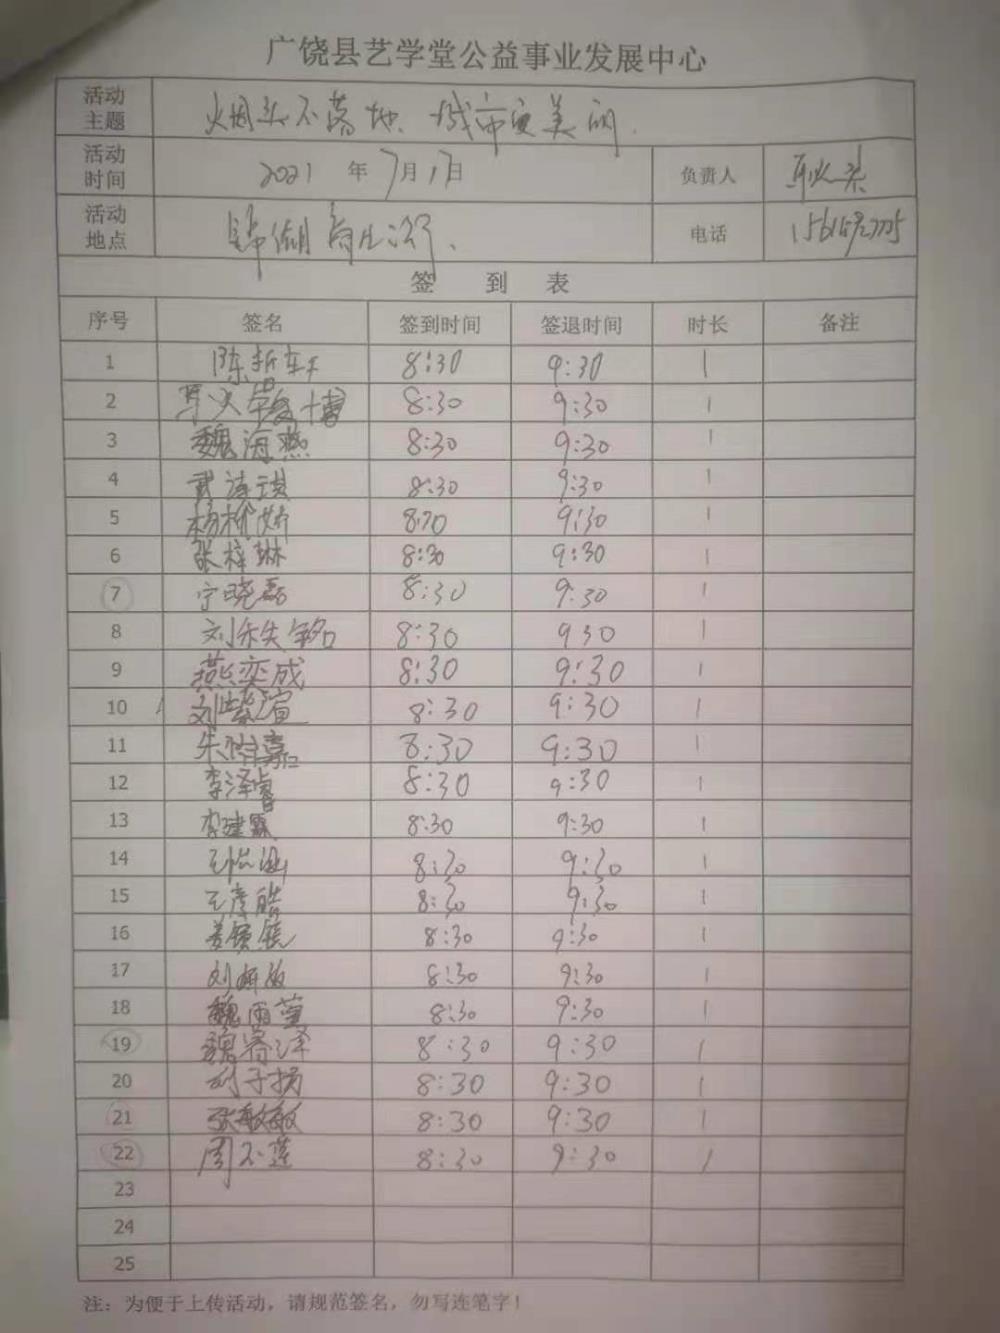 广饶县艺学堂公益事业发展中心
活动主题 烟头不落地、城市更美丽.
活动时间 2021 年 7月17日 负责人
活动地点 电话
签 到 表
序号 签名 签到时间 签退时间 时长 备注
1 8:30 9:30 1
2 8:30 9:30 1
3 魏海燕 8:30 9:30 1
4 8:30 9:30 1
5 杨柳娇 9:30 1
6 张梓琳 8:30 9:30 1
7 宁晓磊 8:30 9:30 1
8 刘 8:30 930 1
9 燕奕成 8:30 9:30 1
10 刘紫渲 8:30 9:30 1
11 朱 8:30 9:30 1
12 李泽睿 8:30 9:30 1
13 李建霖 8:30 9:30 1
14 王 8:30 9:30 1
15 王彦皓 8:30 9:30 1
16 姜 8:30 9:30 1
17 刘妍妆 8:30 9:30 1
18 魏雨萱 8:30 9:30 1
19 魏睿泽 8:30 9:30 1
20 刘子扬 8:30 9:30 1
21 张敏敏 8:30 9:30 1
22 周不莲 8:30 9:30 1
23
24
25
注：为便于上传活动，请规范签名，勿写连笔字！